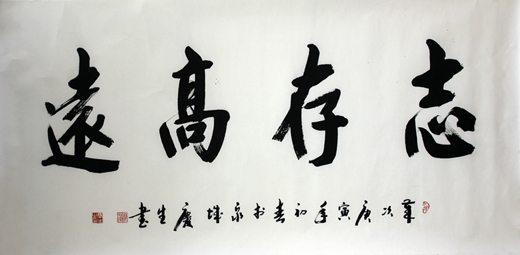 志存高遠
歲次庚寅年初春於泉城慶生書